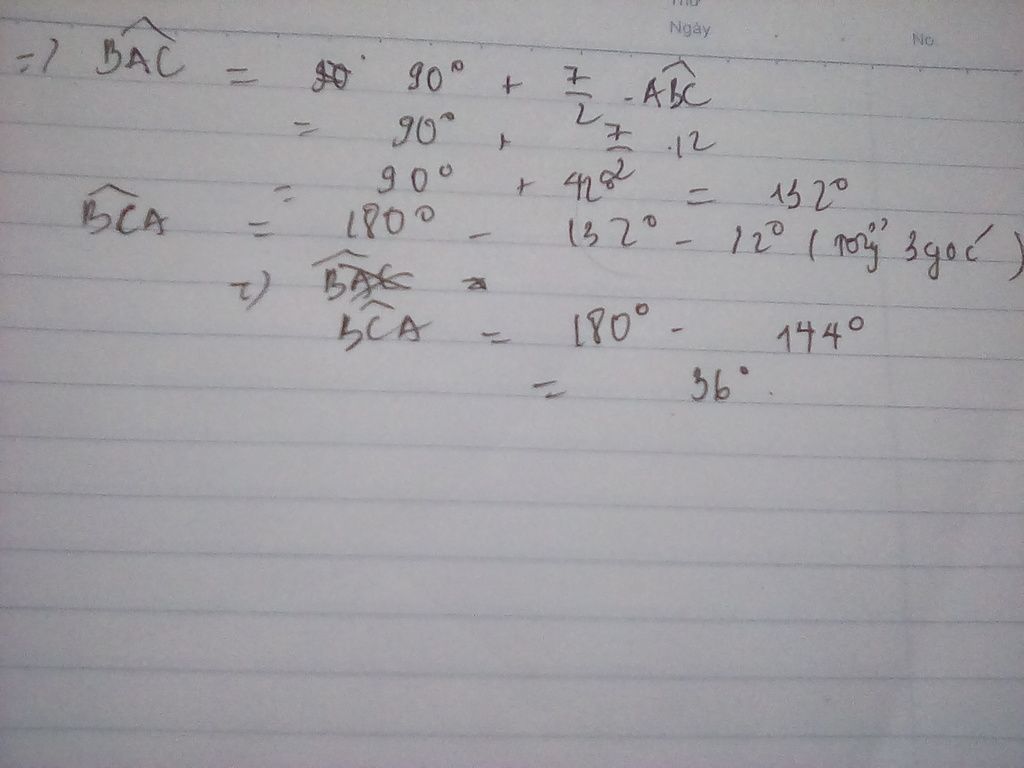 Thứ
Ngày No
=) BAC = 90° + 7/2 . ABC
= 90° + 7/2 . 12
= 90° + 42° = 132°
BCA = 180° - 132° - 12° ( 3 góc )
=)
BCA = 180° - 144°
= 36° .